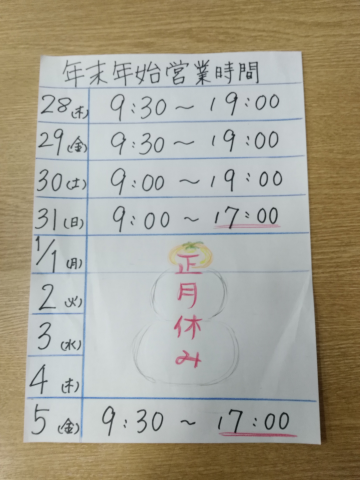 年末年始営業時間
28(木) 9:30～19:00
29(金) 9:30～19:00
30(土) 9:00～19:00
31(日) 9:00～17:00
1/1(月)
2(火)
3(水)
4(木)
正月休み
5(金) 9:30～17:00